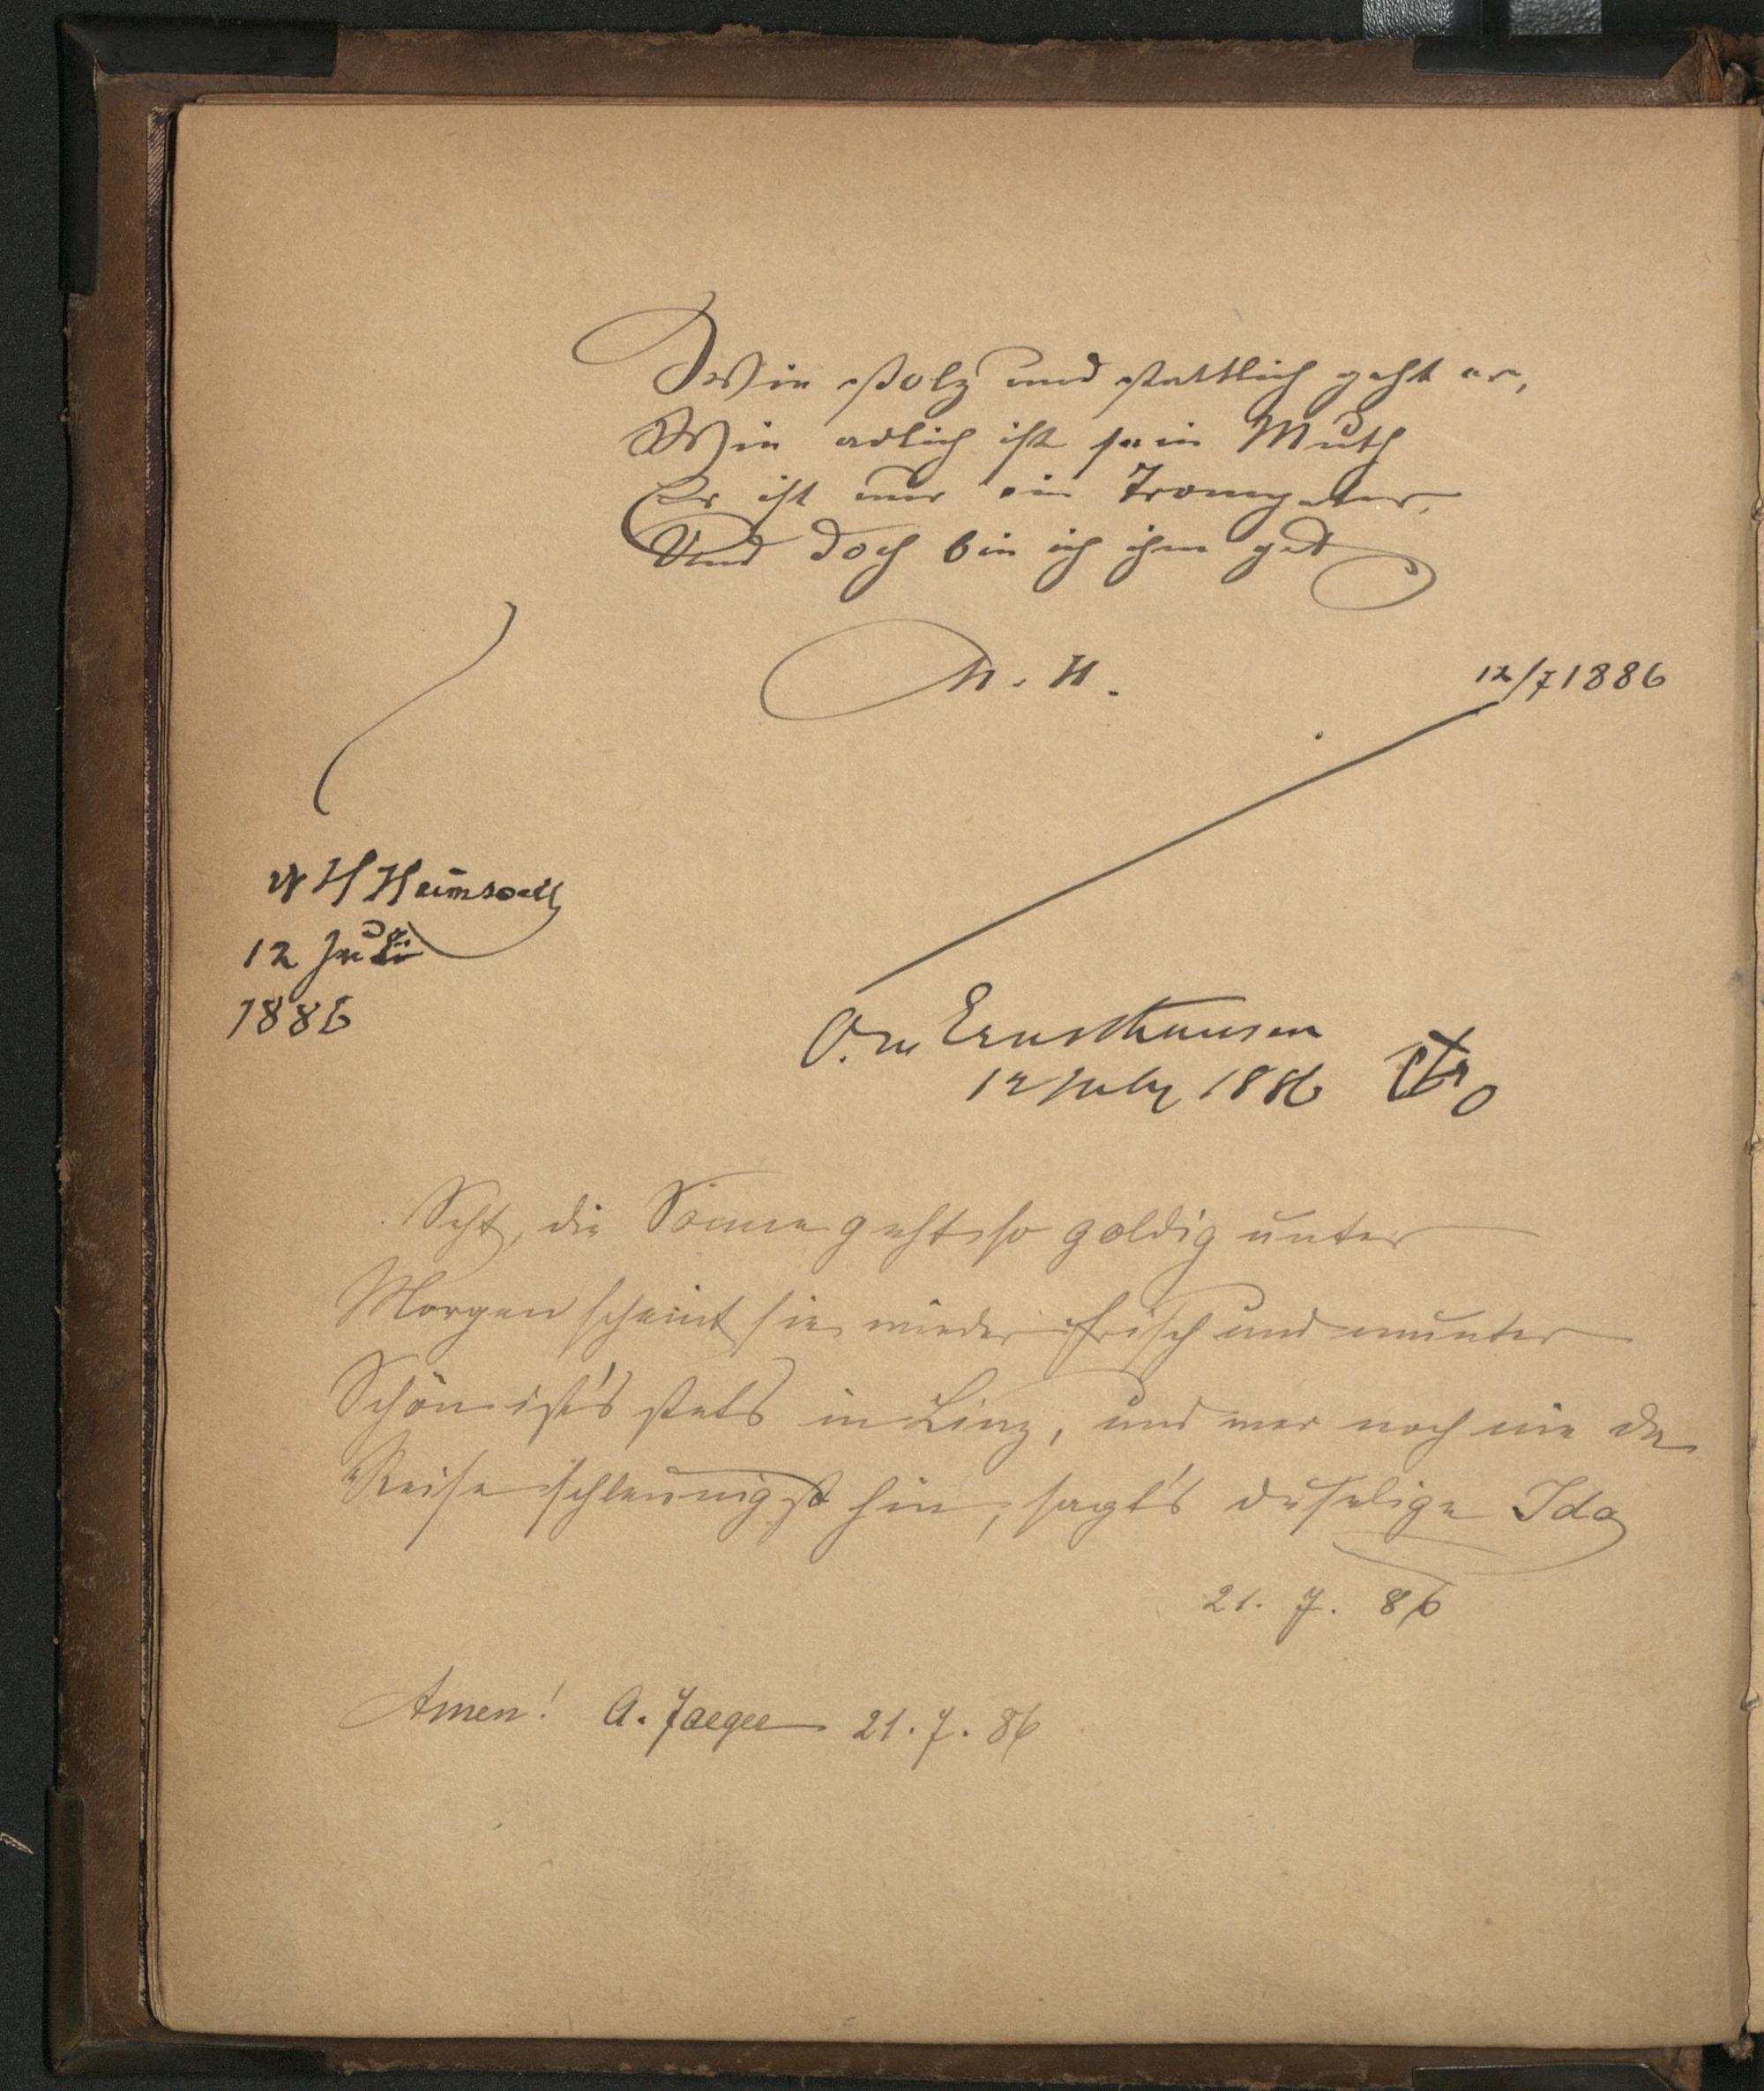 Wie stolz und stattlich geht er,
Wie adlich ist sein Muth
Er ist nur ein Trompeter,
Und doch bin ich ihm gut
M. H.
12/7 1886
H Heimsoeth
12 Juli
1886
O. v. Ernsthausen
12 July 1886
Seht, die Sonne geht so goldig unter
Morgen scheint sie wieder frisch und munter
Schön ist's stets in Linz, und wer noch nie da
Reise schleunigst hin, sagt's duselige Ida
21. 7. 86
Amen! A. Jaeger 21. 7. 86